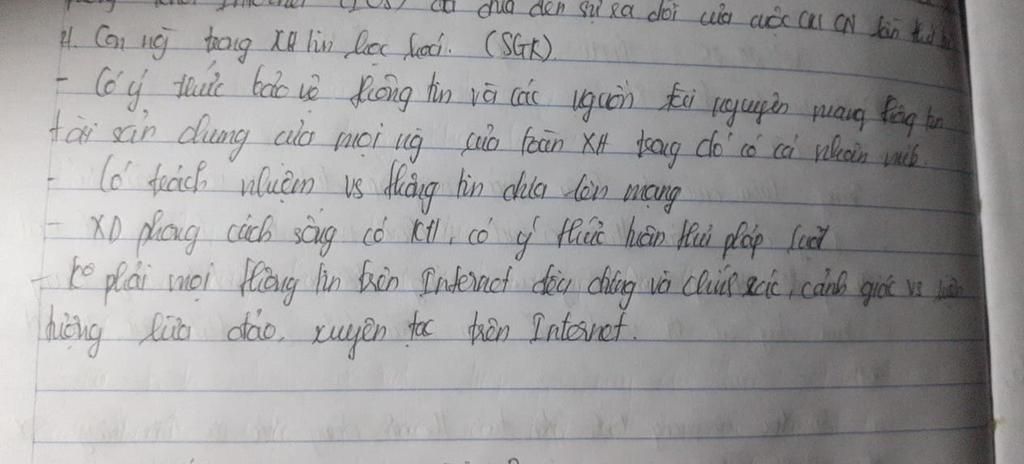 Internet (IOS) đã đưa đến sự ra đời của cuộc CM CN lần thứ
4. Con ng trong XH tin học hoá. (SGK)
- Có ý thức bảo vệ thông tin và các nguồn tài nguyên mang thông tin
tài sản chung của mọi ng của toàn XH trong đó có cá nhân mik.
- Có trách nhiệm vs thông tin đưa lên mạng
- XD phong cách sống có KH, có ý thức tuân thủ pháp luật
- ko phải mọi thông tin trên Internet đều đúng và chính xác, cảnh giác vs hiện
tượng lừa đảo, xuyên tạc trên Internet.